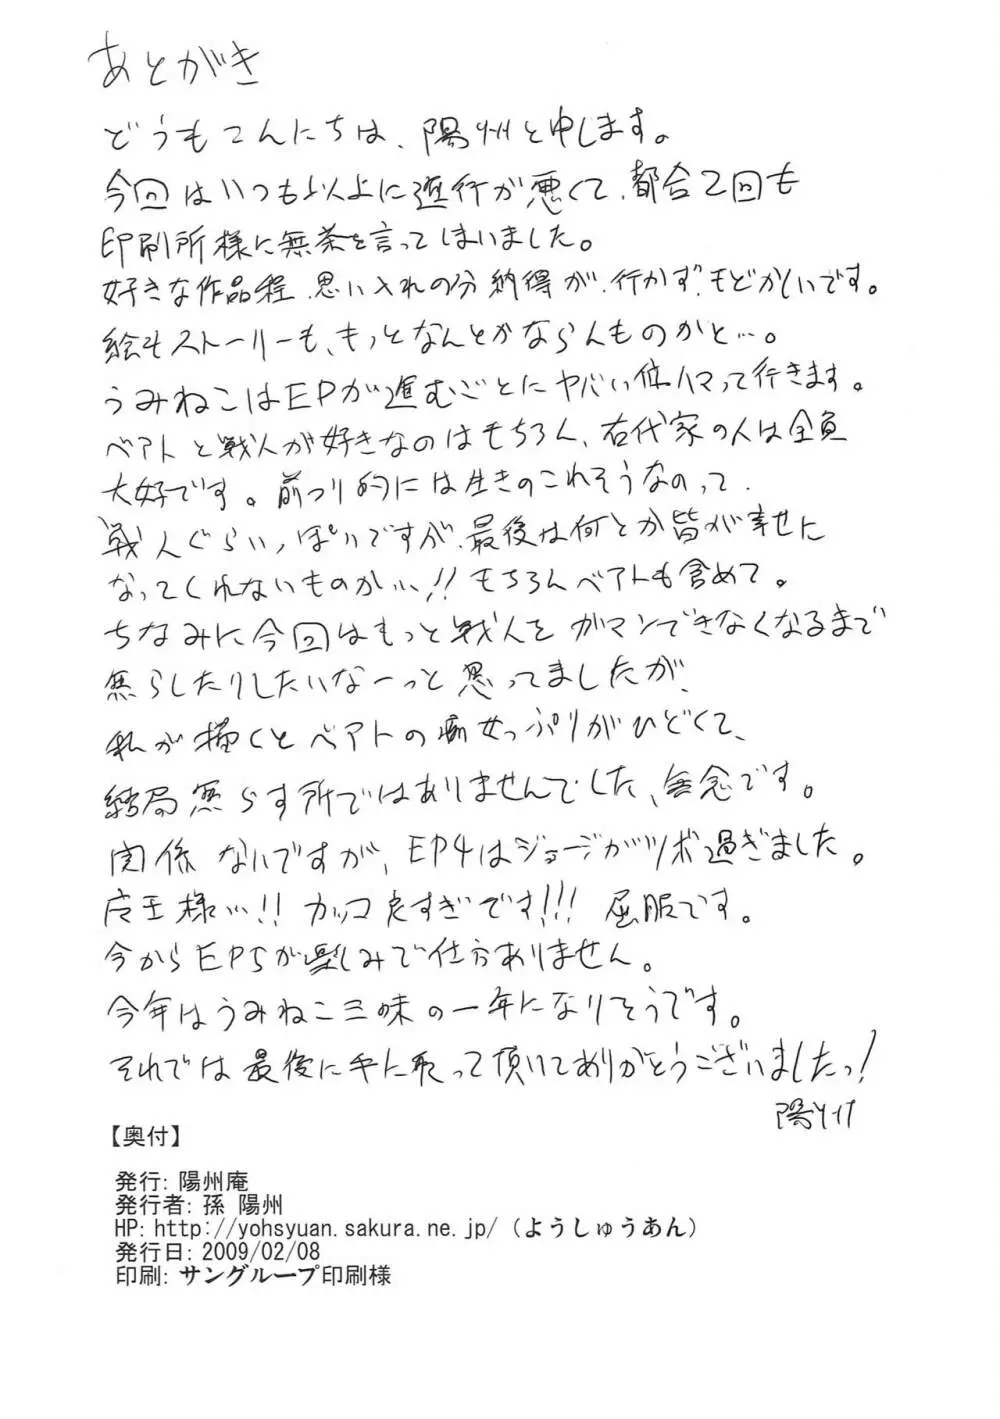 あとがき
どうもこんにちは、陽州と申します。
今回はいつも以上に進行が悪くて、都合2回も
印刷所様に無茶を言ってしまいました。
好きな作品程、思い入れの分納得が行かず、もどかしいです。
絵もストーリーも、もっとなんとかならんものかと…。
うみねこはEPが進むごとにヤバい位ハマって行きます。
ベアトと戦人が好きなのはもちろん、右代宮家の人は全員
大好です。前フリ的には生きのこれそうなのって、
戦人ぐらいっぽいですが、最後は何とか皆が幸せに
なってくれないものか…!!もちろんベアトも含めて。
ちなみに今回はもっと戦人をガマンできなくなるまで
焦らしたりしたいなーっと思ってましたが、
私が描くとベアトの痴女っぷりがひどくて、
結局焦らす所ではありませんでした、無念です。
関係ないですが、EP4はジョージがツボ過ぎました。
店主様…!!カッコ良すぎです!!!屈服です。
今からEP5が楽しみで仕方ありません。
今年はうみねこ三昧の一年になりそうです。
それでは最後に手に取って頂いてありがとうございましたっ!
陽州
【奥付】
発行: 陽州庵
発行者: 孫 陽州
HP: http://yohsyuan.sakura.ne.jp/（ようしゅうあん）
発行日: 2009/02/08
印刷: サングループ印刷様